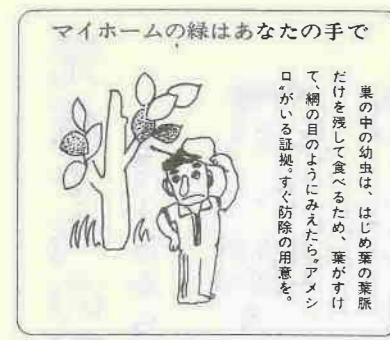 マイホームの緑はあなたの手で
巣の中の幼虫は、はじめ葉の葉脈
だけを残して食べるため、葉がすけ
て、網の目のようにみえたら〝アメシ
ロ〟がいる証拠。すぐ防除の用意を。